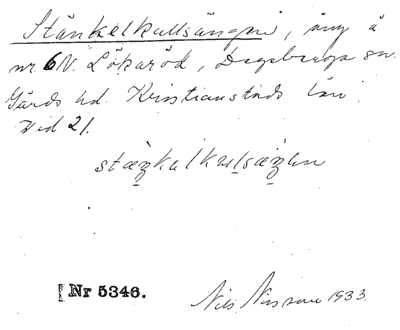 Stänkelkullsängen, äng å
nr. 6 N. Lökaröd, Degeberga sn.
Gärds hd. Kristianstads län
Vid 21.
stæŋkulkulsæŋen
[Nr 5346.
Nils Nilsson 1933.